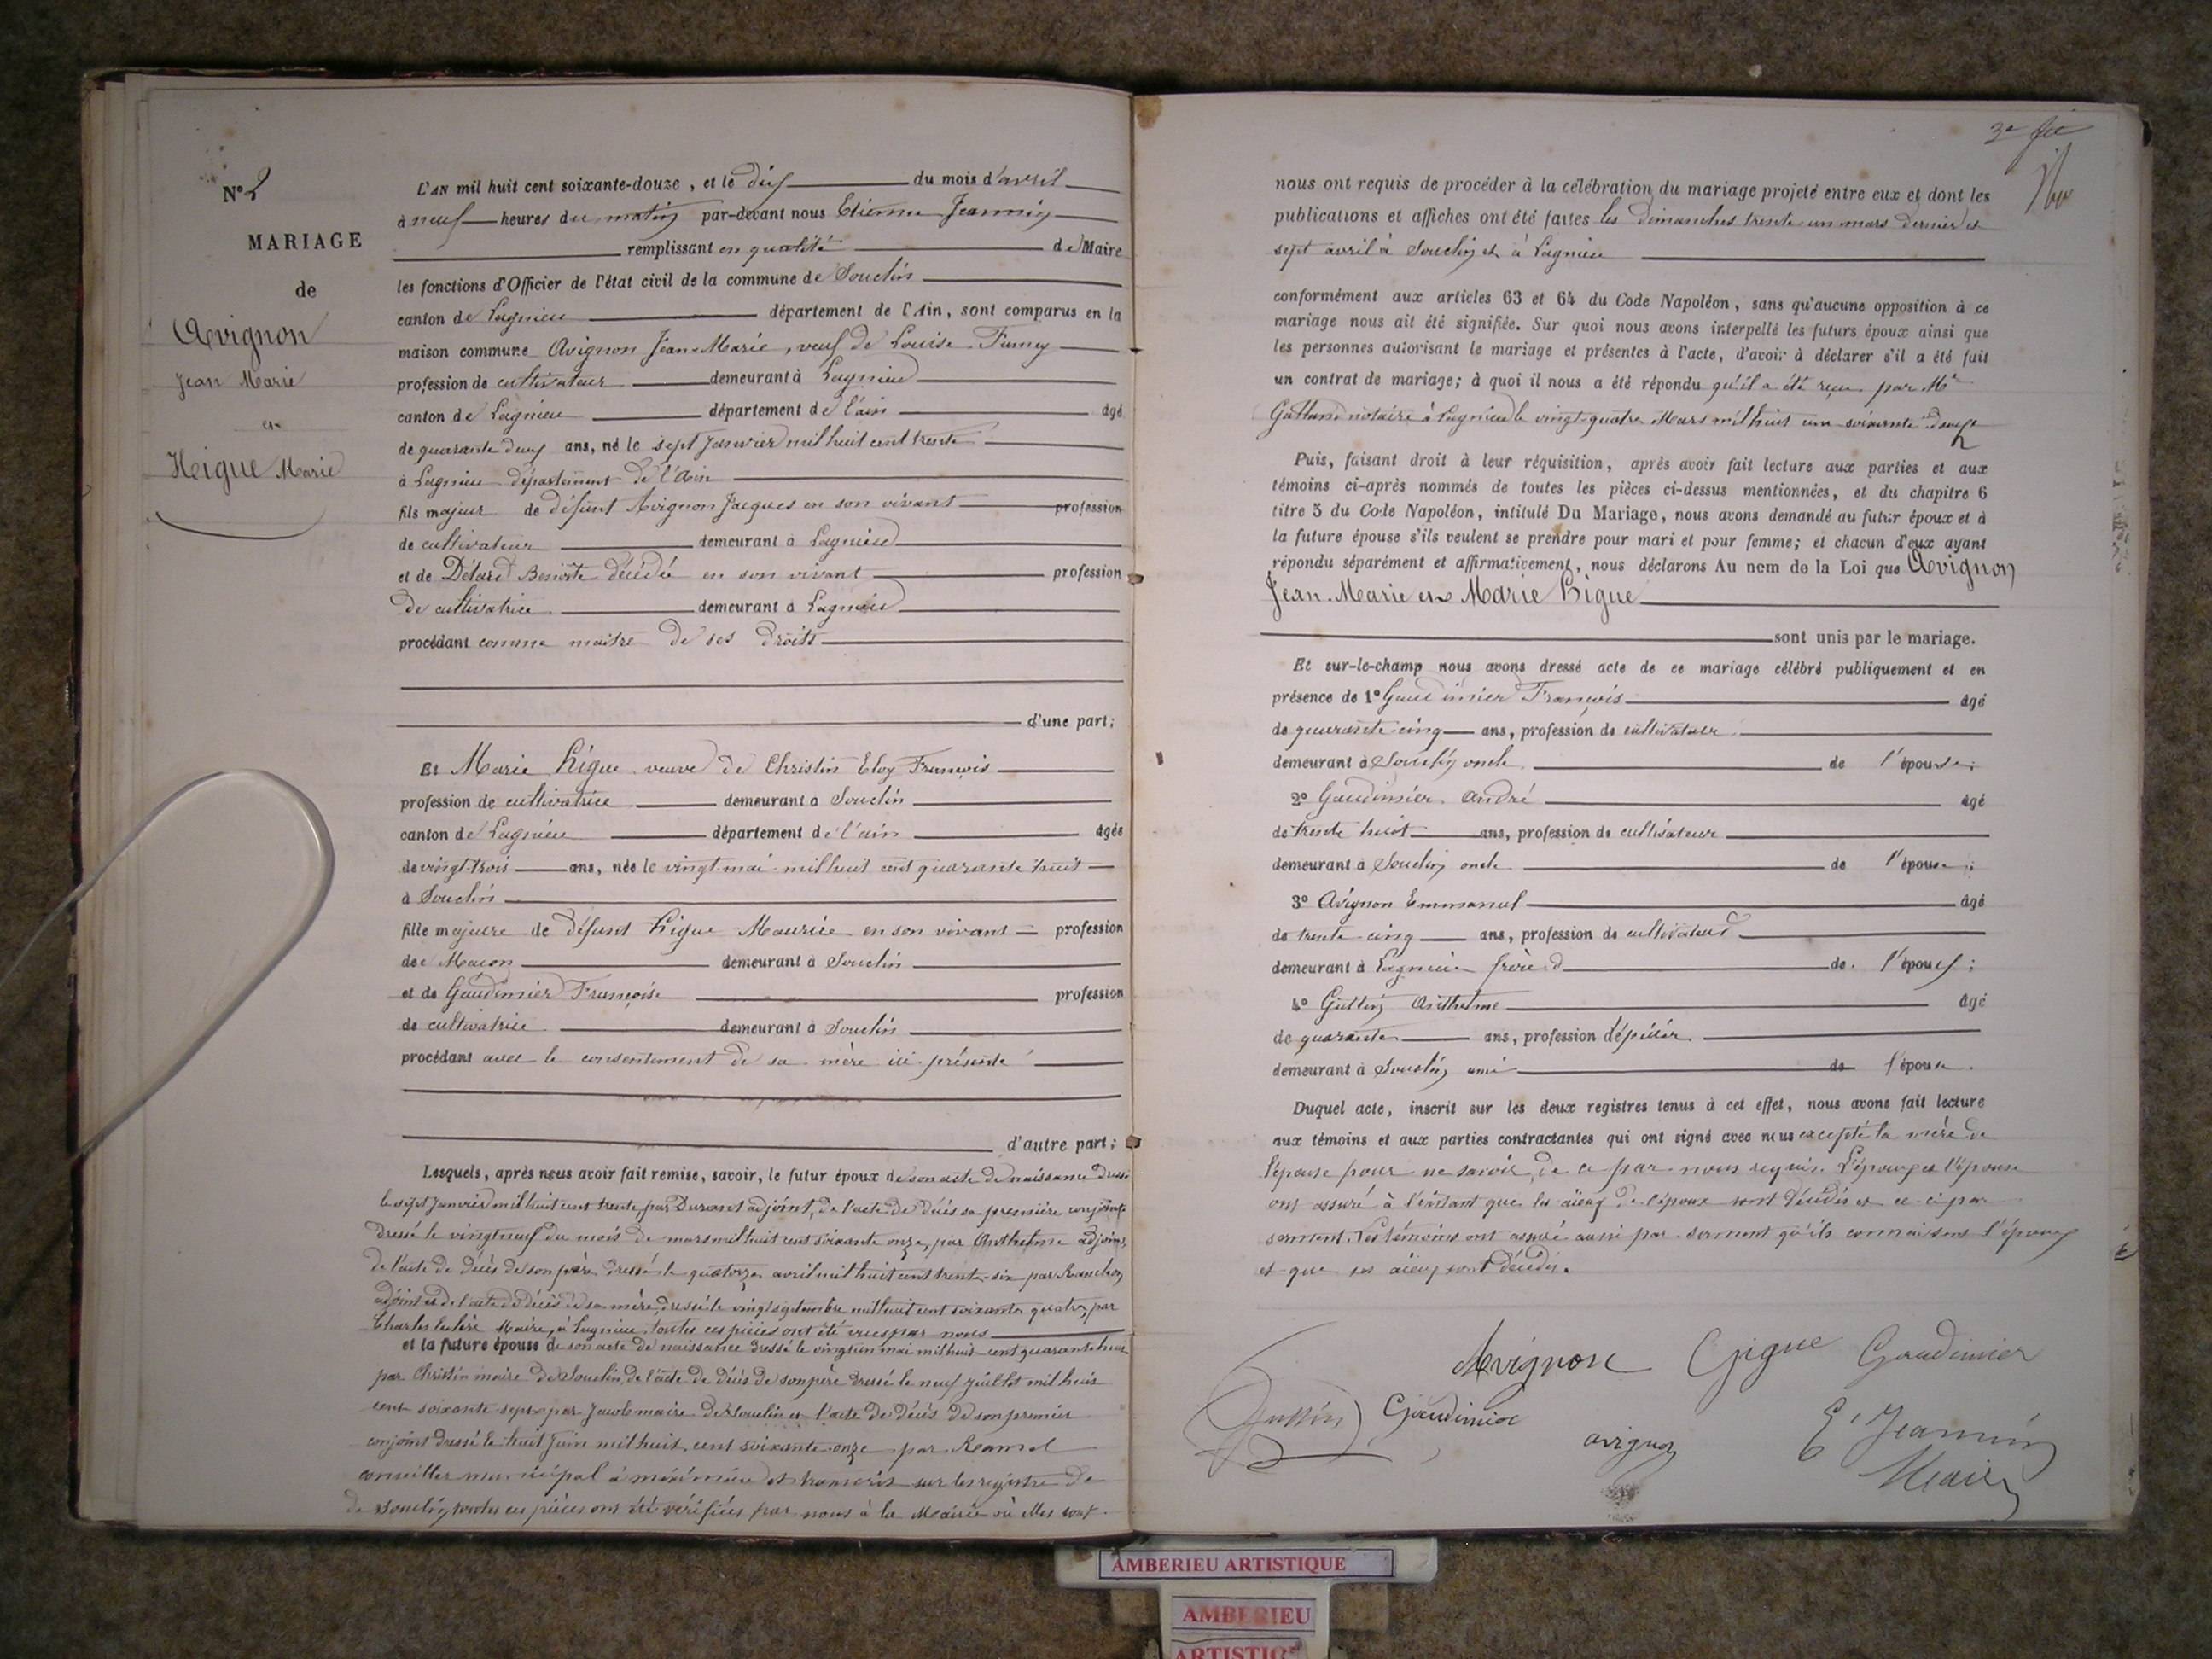 N° 2
MARIAGE
de
Avignon
Jean Marie
et
Higue Marie
L'AN mil huit cent soixante-douze, et le dix du mois d'avril
à neuf heures du matin par-devant nous Etienne Jeannin
remplissant en qualité de Maire
les fonctions d'Officier de l'état civil de la commune de Souclin
canton de Lagnieu département de l'Ain, sont comparus en la
maison commune Avignon Jean-Marie, veuf de Louise Fumey
profession de cultivateur demeurant à Lagnieu
canton de Lagnieu département de l'ain âgé
de quarante deux ans, né le sept Janvier mil huit cent trente
à Lagnieu département de l'Ain
fils majeur de défunt Avignon Jacques en son vivant profession
de cultivateur demeurant à Lagnieu
et de Détard Benoite décédée en son vivant profession
de cultivatrice demeurant à Lagnieu
procédant comme maitre de ses droits
d'une part;
Et Marie Higue veuve de Christin Eloy François
profession de cultivatrice demeurant à Souclin
canton de Lagnieu département de l'ain âgée
de vingt-trois ans, née le vingt mai mil huit cent quarante huit
à Souclin
fille majeure de défunt Higue Maurice en son vivant profession
de Macon demeurant à Souclin
et de Gaudimier Françoise profession
de cultivatrice demeurant à Souclin
procédant avec le consentement de sa mère ici présente
d'autre part;
Lesquels, après nous avoir fait remise, savoir, le futur époux de son acte de naissance dressé
le sept Janvier mil huit cent trente, par Durant adjoint, de l'acte de décès sa première conjointe
dressé le vingt neuf du mois de mars mil huit cent soixante onze, par Anthelme adjoint,
de l'acte de décès de son père dressé le quatorze avril mil huit cent trente-six par
adjoint et de l'acte de décès de sa mère, dressé le vingt septembre mil huit cent soixante quatre, par
Charles Maire, à Lagnieu, toutes ces pièces ont été vues par nous
et la future épouse de son acte de naissance dressé le vingt un mai mil huit cent quarante huit
par Christin maire de Souclin, de l'acte de décès de son père dressé le neuf juillet mil huit
cent soixante sept par Jacob maire de Souclin et l'acte de décès de son premier
conjoint dressé le huit Juin mil huit cent soixante-onze par Ramel
conseiller municipal à et transcrit sur les registre de
de Souclin, toutes ces pièces ont été vérifiées par nous à la Mairie où elles sont.
nous ont requis de procéder à la célébration du mariage projeté entre eux et dont les
publications et affiches ont été faites les dimanches trente-un mars dernier et
sept avril à Souclin et à Lagnieu
conformément aux articles 63 et 64 du Code Napoléon, sans qu'aucune opposition à ce
mariage nous ait été signifiée. Sur quoi nous avons interpellé les futurs époux ainsi que
les personnes autorisant le mariage et présentes à l'acte, d'avoir à déclarer s'il a été fait
un contrat de mariage; à quoi il nous a été répondu qu'il a été reçu par Me
notaire à Lagnieu le vingt-quatre Mars mil huit cent soixante douze
Puis, faisant droit à leur réquisition, après avoir fait lecture aux parties et aux
témoins ci-après nommés de toutes les pièces ci-dessus mentionnées, et du chapitre 6
titre 5 du Code Napoléon, intitulé Du Mariage, nous avons demandé au futur époux et à
la future épouse s'ils veulent se prendre pour mari et pour femme; et chacun d'eux ayant
répondu séparément et affirmativement, nous déclarons Au nom de la Loi que Avignon
Jean-Marie et Marie Higue
sont unis par le mariage.
Et sur-le-champ nous avons dressé acte de ce mariage célébré publiquement et en
présence de 1° Gaudimier François âgé
de quarante-cinq ans, profession de cultivateur
demeurant à Souclin oncle de l'épouse;
2° Gaudimier André âgé
de trente huit ans, profession de cultivateur
demeurant à Souclin oncle de l'épouse;
3° Avignon Emmanuel âgé
de trente-cinq ans, profession de cultivateur
demeurant à Lagnieu frère de l'époux;
4° Guttin Anthelme âgé
de quarante ans, profession d'épicier
demeurant à Souclin ami de l'épouse.
Duquel acte, inscrit sur les deux registres tenus à cet effet, nous avons fait lecture
aux témoins et aux parties contractantes qui ont signé avec nous excepté la mère de
l'épouse pour ne savoir, de ce par nous requis. L'époux et l'épouse
ont assuré à l'instant que les aïeux de l'époux sont décédés et ce-ci par
serment. Les témoins ont assuré aussi par serment qu'ils connaissent l'époux
et que ses aïeux sont décédés.
Avignon Gigue Gaudimier
Guttin Gaudimier
avignon
E Jeannin
Maire
AMBERIEU ARTISTIQUE
AMBERIEU
ARTISTIQ